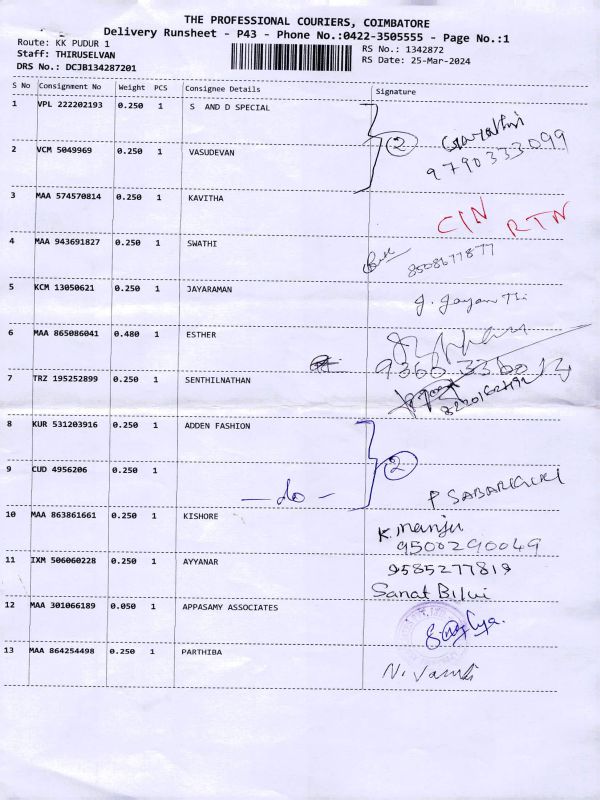 THE PROFESSIONAL COURIERS, COIMBATORE
Delivery Runsheet - P43 - Phone No.:0422-3505555 - Page No.:1
Route: KK PUDUR 1
RS No.: 1342872
Staff: THIRUSELVAN
RS Date: 25-Mar-2024
DRS No.: DCJB134287201
S No Consignment No Weight PCS Consignee Details Signature
1 VPL 222202193 0.250 1 S AND D SPECIAL
2
9790333099
2 VCM 5049969 0.250 1 VASUDEVAN
3 MAA 574570814 0.250 1 KAVITHA
C/N RTN
4 MAA 943691827 0.250 1 SWATHI
8508677877
5 KCM 13050621 0.250 1 JAYARAMAN
6 MAA 865086041 0.480 1 ESTHER
7 TRZ 195252899 0.250 1 SENTHILNATHAN
8 KUR 531203916 0.250 1 ADDEN FASHION
2
9 CUD 4956206 0.250 1
- do -
10 MAA 863861661 0.250 1 KISHORE
K. Manju
9500290049
11 IXM 506060228 0.250 1 AYYANAR
9585277819
12 MAA 301066189 0.050 1 APPASAMY ASSOCIATES
13 MAA 864254498 0.250 1 PARTHIBA